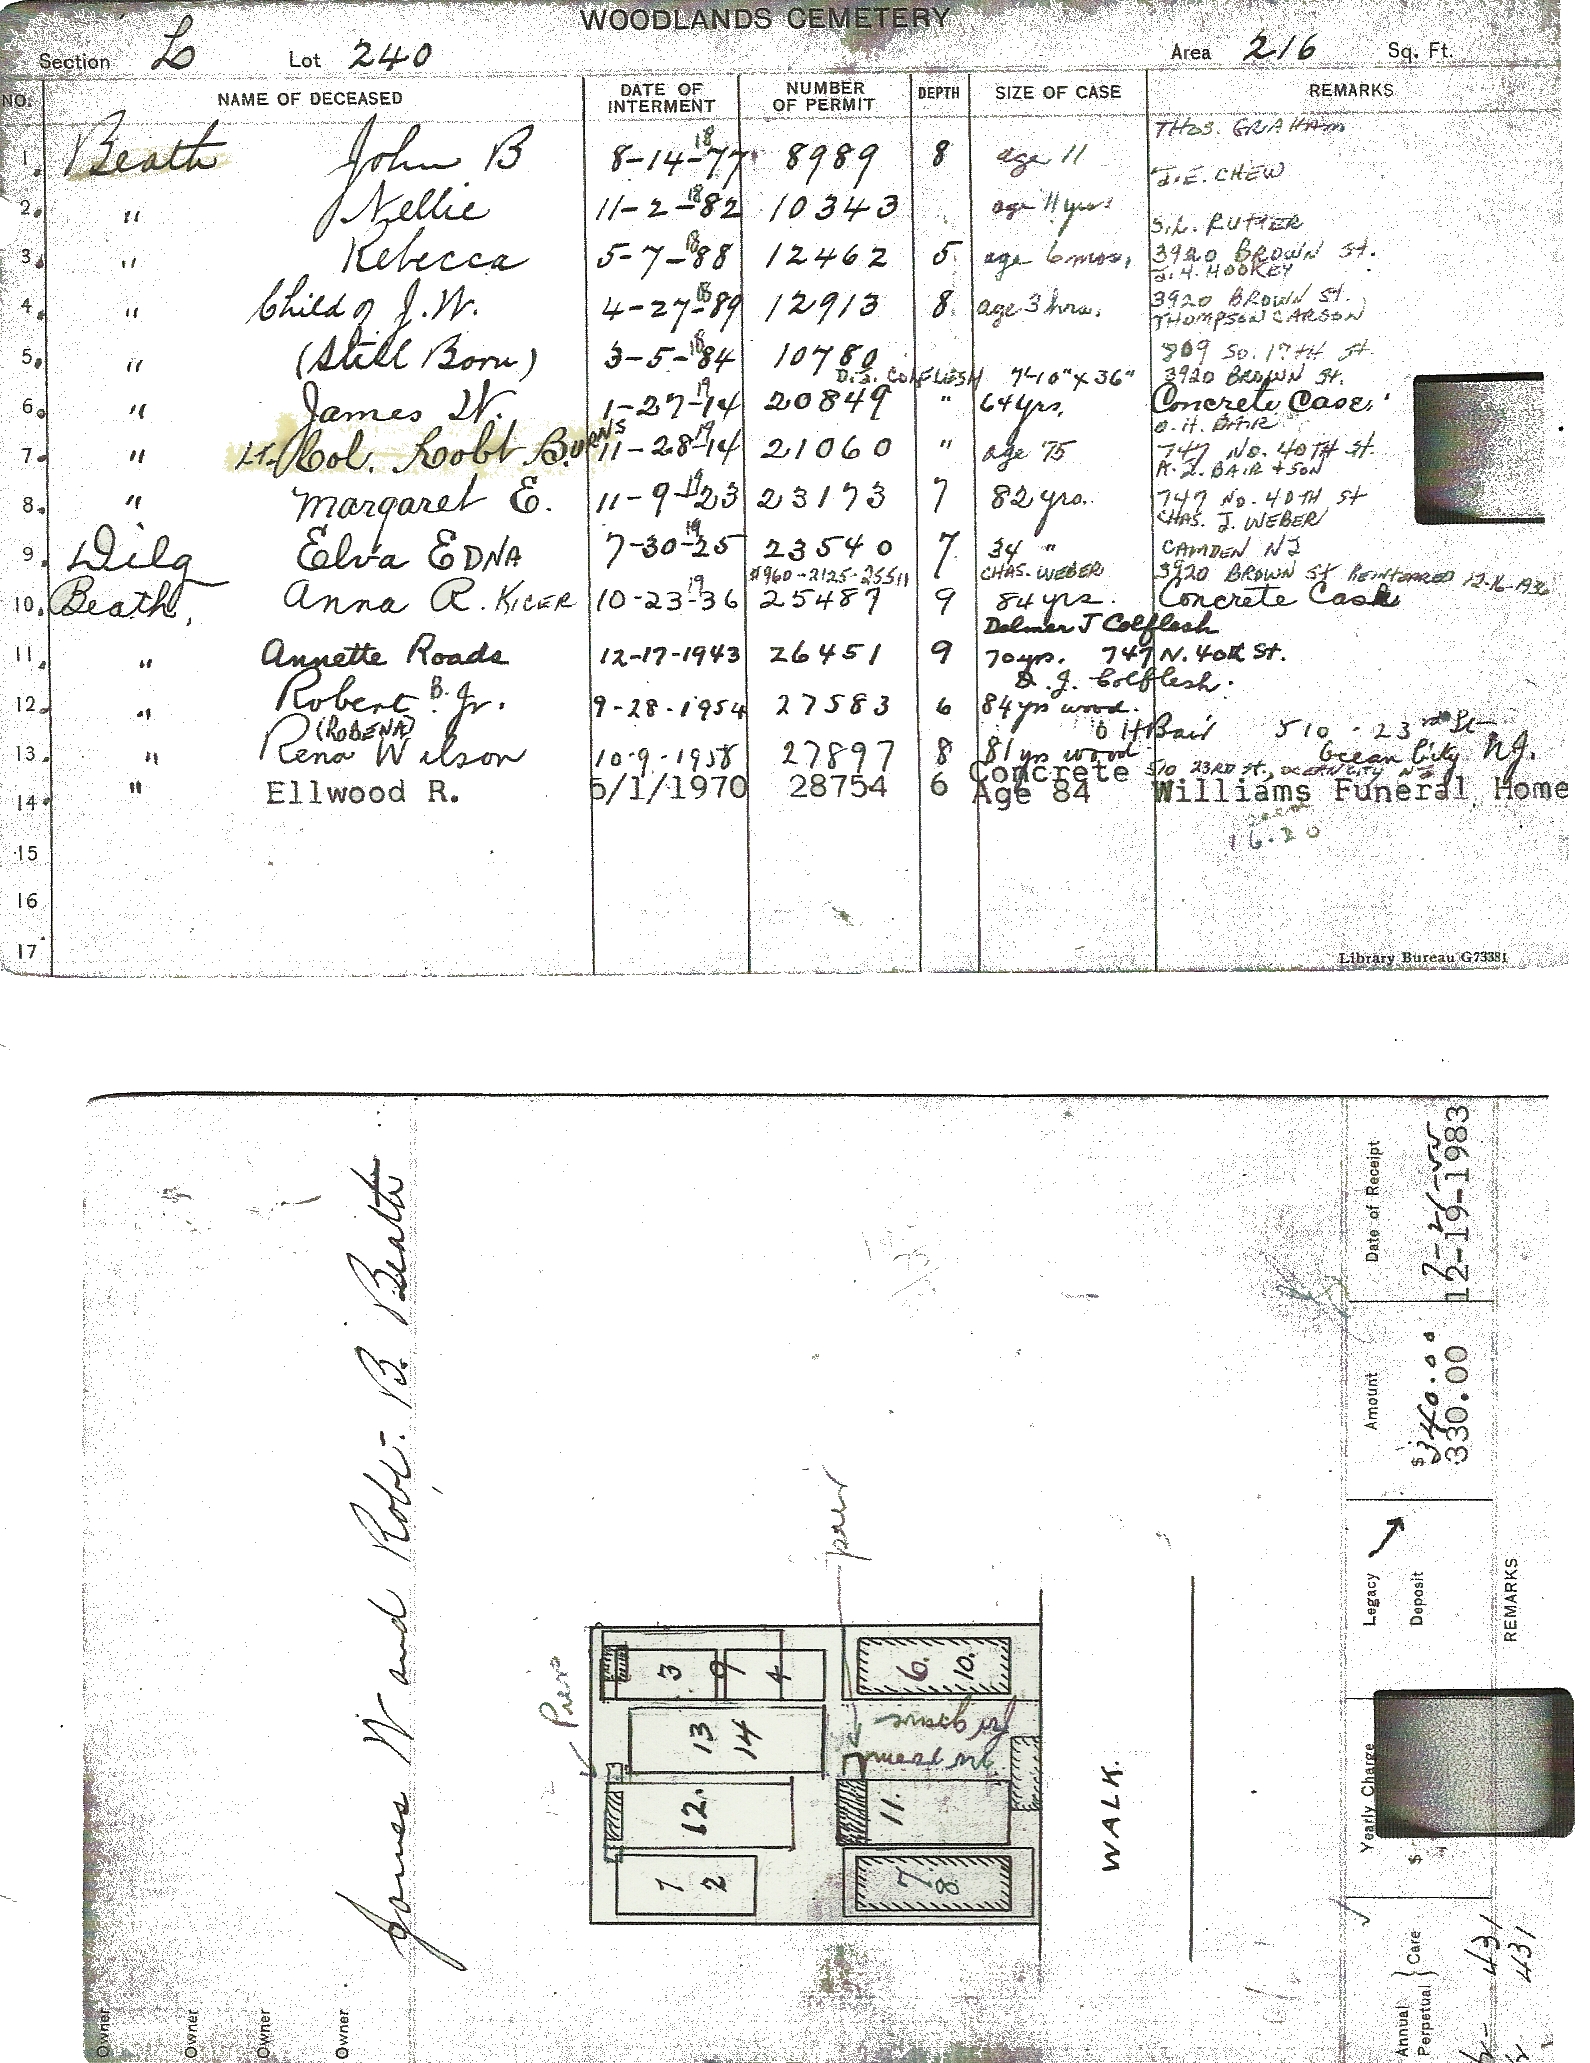 WOODLANDS CEMETERY
Section L Lot 240 Area 216 Sq. Ft.
NO. NAME OF DECEASED DATE OF INTERMENT NUMBER OF PERMIT DEPTH SIZE OF CASE REMARKS
THOS. GRAHAM
1. Beath John B 8-14-1877 8989 8 age 11
J.E. CHEW
2. " Nellie 11-2-1882 10343 age 11 yrs
S.L. RUTTER
3. " Rebecca 5-7-1888 12462 5 age 6 mos. 3920 BROWN ST.
J.H. HOOKEY
4. " Child of J.W. 4-27-1889 12913 8 age 3 hrs. 3920 BROWN ST.
THOMPSON CARSON
5. " (Still Born) 3-5-1884 10780 809 SO. 17TH ST.
D.J. COLFLESH 7'-10" x 36" 3920 BROWN ST.
6. " James W. 1-27-1914 20849 " 64 yrs. Concrete Case.
O.H. BAIR
7. " LT. Col. Robt BURNS 11-28-1914 21060 " age 75 747 NO. 40TH ST.
BAIR + SON
8. " Margaret E. 11-9-1923 23173 7 82 yrs. 747 NO. 40TH ST
CHAS. J. WEBER
9. Dilg Elva EDNA 7-30-1925 23540 7 34 " CAMDEN NJ
CHAS. WEBER 3920 BROWN ST REINTERRED 12-16-1936
10. Beath, Anna R. KICER 10-23-1936 25487 9 84 yrs. Concrete Case
Delmer J Colflesh
11. " Annette Roads 12-17-1943 26451 9 70 yrs. 747 N. 40th St.
D. J. Colflesh.
12. " Robert B. Jr. 9-28-1954 27583 6 84 yrs wood.
(ROBENA) O H Bair 510 - 23rd St
13. " Rena Wilson 10-9-1958 27897 8 81 yrs wood Ocean City NJ.
Concrete 510 23RD ST., OCEAN CITY NJ
14. " Ellwood R. 5/1/1970 28754 6 Age 84 Williams Funeral Home
16.20
15
16
17
Library Bureau G73381
Owner
Owner
Owner
Owner
James W and Robt. B. Beath
Piers
pier
3 9 4
6. 10.
13
14
12.
11.
1
2
7
8
no room
for grave
WALK.
Date of Receipt
12-19-1983
Amount
$ 340.00
330.00
Legacy
Deposit
REMARKS
Yearly Charge
$
Annual
Perpetual } Care
431
431